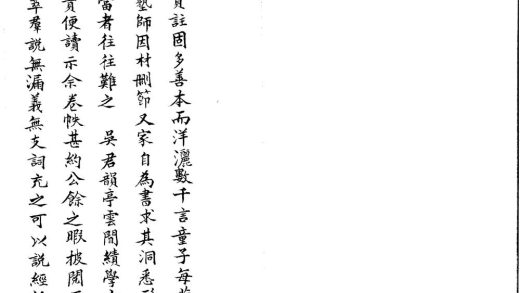 註固多善本而洋灑數千言童子每
塾師因材刪節又家自為書求其洞悉
當者往往難之 吳君韻亭雲間績學
貢便讀示余卷帙甚約公餘之暇披閱
萃羣說無漏義無支詞充之可以說經